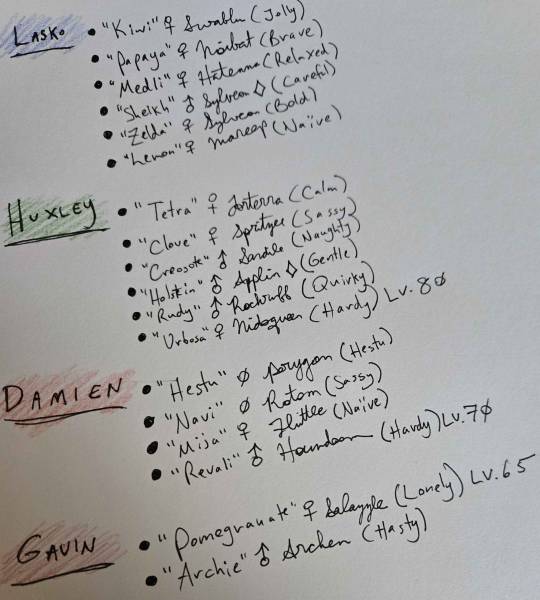 LASKO
• "Kiwi" ♀ Swablu (Jolly)
• "Papaya" ♀ Noibat (Brave)
• "Medli" ♀ Hatenna (Relaxed)
• "Sheikh" ♂ Sylveon ◇ (Careful)
• "Zelda" ♀ Sylveon (Bold)
• "Lemon" ♀ mareep (Naïve)
HUXLEY
• "Tetra" ♀ Torterra (Calm)
• "Clove" ♀ Spritzee (Sassy)
• "Creosote" ♂ Sandile (Naughty)
• "Holstin" ♂ Applin ◇ (Gentle)
• "Rudy" ♂ Rockruff (Quirky)
• "Urbosa" ♀ Nidoqueen (Hardy) Lv. 80
DAMIEN
• "Hestu" Ø porygon (Hestu)
• "Navi" Ø Rotom (Sassy)
• "Mija" ♀ Flittle (Naïve)
• "Revali" ♂ Houndoom (Hardy) Lv. 70
GAVIN
• "Pomegranate" ♀ Salazzle (Lonely) Lv. 65
• "Archie" ♂ Archen (Hasty)